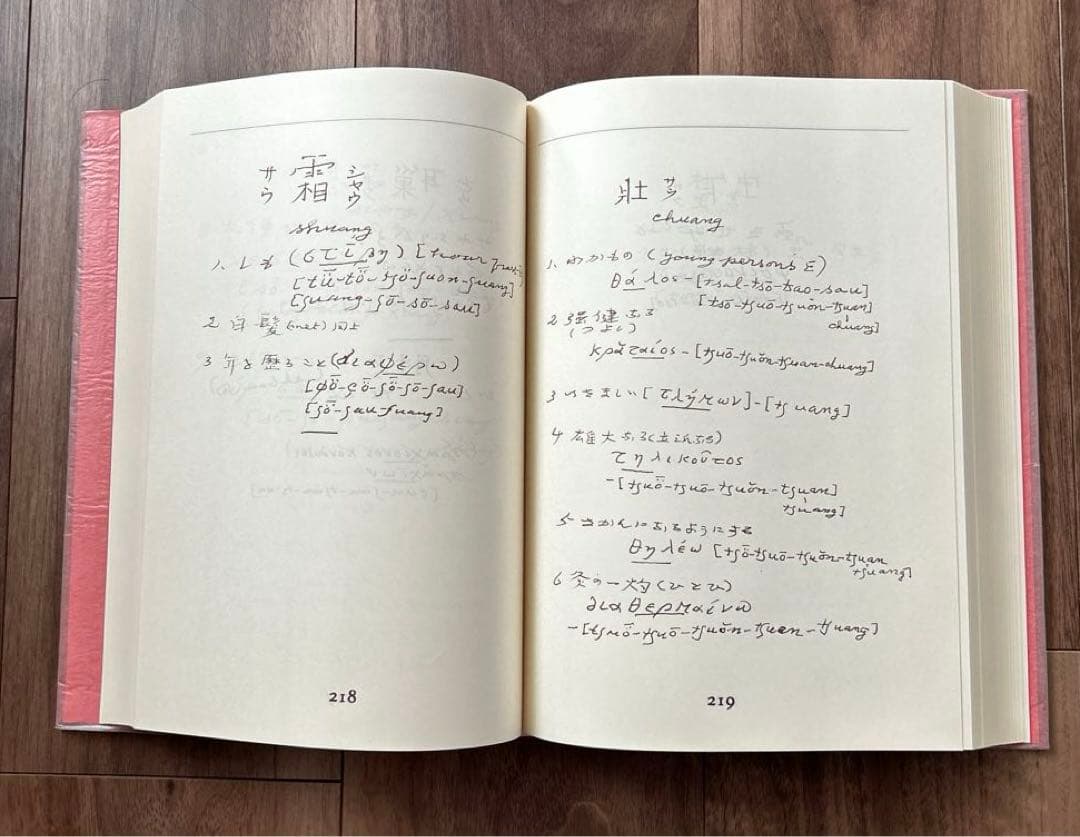 サウ 霜 シャウ
shuang
1. しも (στίβη) [hoar frost]
[tü-tö-tʃö-ʃuon-ʃuang]
[ʃuang-ʃō-sō-sau]
2 白髪
3 年を歴ること (διαφέρω)
[φö-çö-ʃö-ʃō-ʃau]
[ʃö-ʃau-ʃuang]
218
壯 サウ
chuang
1. わかもの (young persons)
θάλος-[tsal-tsō-tsao-sau]
[tsō-tʃuō-tʃuŏn-tʃuan]
chuang]
2 强健なる
(つよい)
κραταίος-[tʃuō-tʃuŏn-tʃuan-chuang]
3 いさましい [τλήμων]-[tʃuang]
4 雄大なる(立派なる)
τηλικοῦτος
-[tʃuö-tʃuō-tʃuŏn-tʃuan]
tʃuang]
5 さかんになるようにする
θηλέω [tʃō-tʃuō-tʃuŏn-tʃuan
tʃuang]
6 灸の一灼(ひとひ)
διαθερμαίνω
-[tʃuö-tʃuō-tʃuŏn-tʃuan-tʃuang]
219